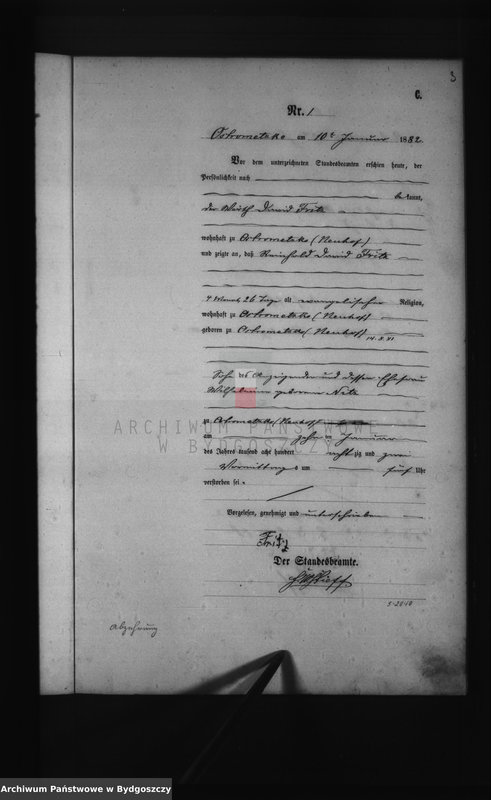 3
C.
Nr. 1
Ostrometzko am 10t Januar 1882.
Vor dem unterzeichneten Standesbeamten erschien heute, der
Persönlichkeit nach
bekannt,
der Wirth David Fritz
wohnhaft zu Ostrometzko (Neuhof)
und zeigte an, daß Reinhold David Fritz
4 Monat 26 Tage alt evangelischer Religion,
wohnhaft zu Ostrometzko (Neuhof)
geboren zu Ostrometzko (Neuhof)
14.8.81
Sohn des Anzeigenden und dessen Ehefrau
Wilhelmine geborene
zu Ostrometzko (Neuhof)
am zehn ten Januar
des Jahres tausend acht hundert achtzig und zwei
Vormittags um fünf Uhr
verstorben sei.
Vorgelesen, genehmigt und unterschrieben
Der Standesbeamte.
Abzehrung
ARCHIWUM PAŃSTWOWE
W BYDGOSZCZY
Archiwum Państwowe w Bydgoszczy